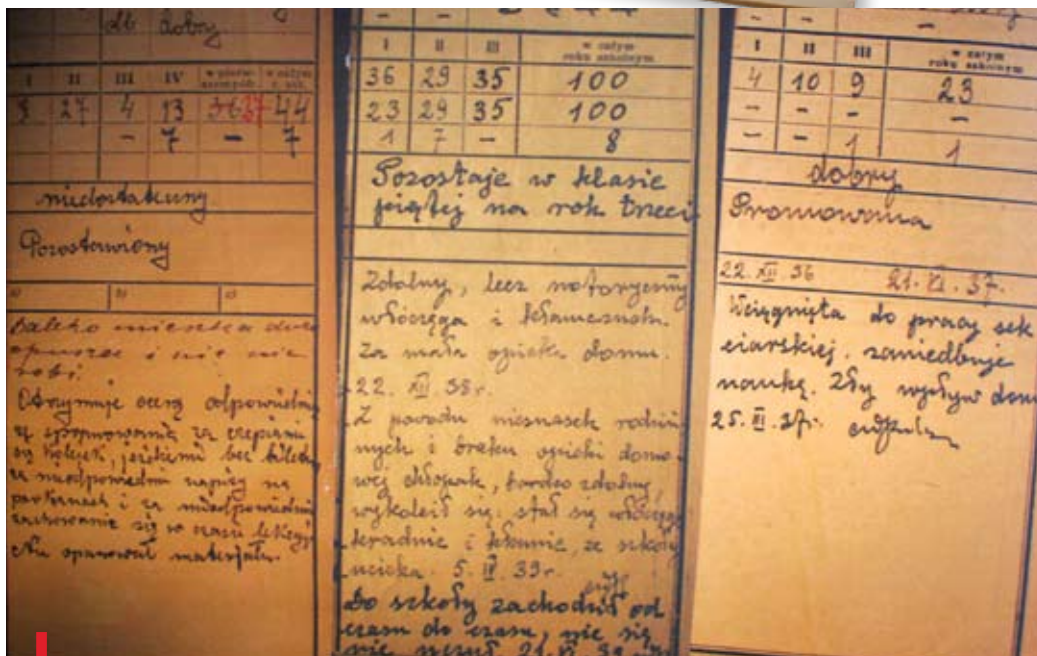 db dobry
I II III IV w całym
27 4 13 36 37 44
– 7 – 7
niedostateczny
Pozostawiony
a) b) c)
Daleko mieszka dużo
opuszcza i nic nie
robi.
Otrzymuje ocenę odpowiednią
ze sprawowania za czepianie
się kolejek, jeżdżenie bez biletu
za nieodpowiednie napisy na
parkanach i za nieodpowiednie
zachowanie się w czasie lekcyj
Nie opanował materjału.
I II III w całym
roku szkolnym
36 29 35 100
23 29 35 100
1 7 – 8
Pozostaje w klasie
piątej na rok trzeci
Zdolny, lecz notoryczny
włóczęga i kłamczuch.
Za mała opieka domu.
22. XII. 38 r.
Z powodu niesnasek rodzin
nych i braku opieki domo-
wej chłopak, bardzo zdolny
wykoleił się: stał się włóczęgą
kradnie i kłamie, ze szkoły
ucieka. 5. IV. 39 r.
Do szkoły zachodził od
czasu do czasu, nic się
nie uczył. 21. VI. 39
I II III w całym
roku szkolnym
4 10 9 23
– – – –
– – 1 1
dobry
Promowana
22. XII. 36 21. VI. 37.
Wciągnięta do pracy sek
ciarskiej, zaniedbuje
naukę. Zły wpływ domu
25. XI. 37 r.